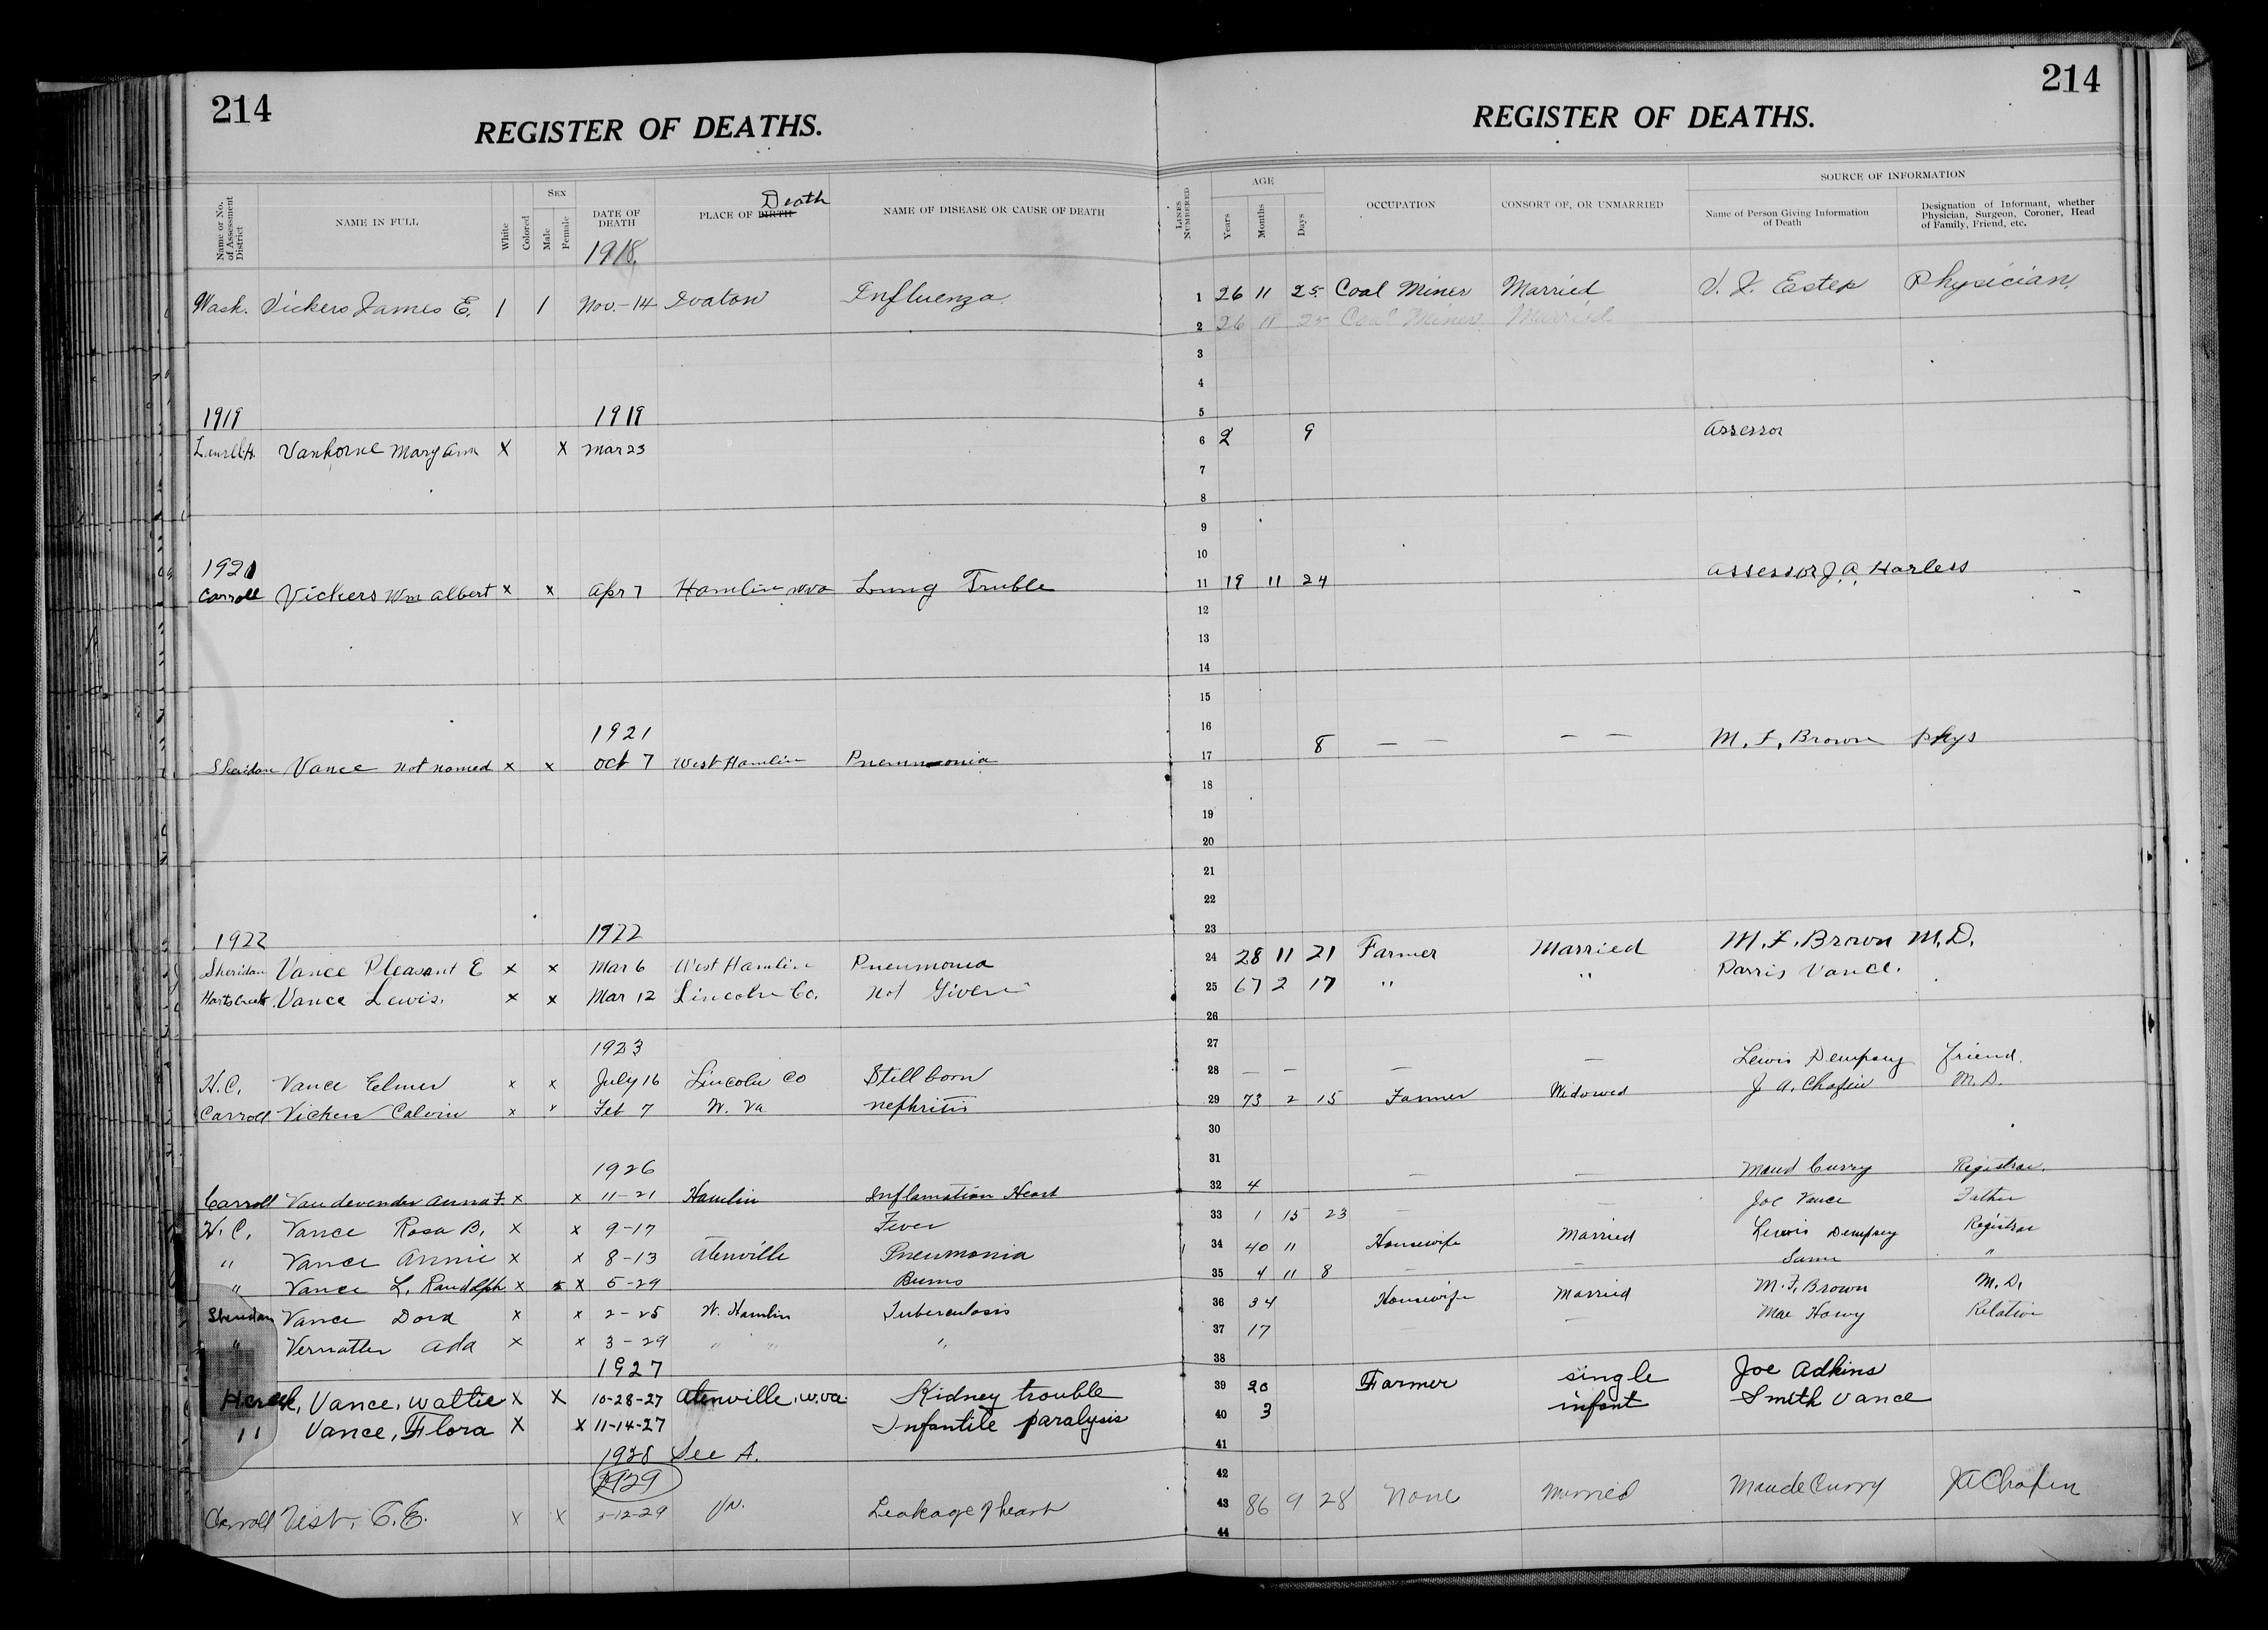 214
REGISTER OF DEATHS.
Name or No. of Assessment District
NAME IN FULL
White
Colored
SEX
Male
Female
DATE OF DEATH
1918.
PLACE OF BIRTH Death
NAME OF DISEASE OR CAUSE OF DEATH
Wash. Vickers James E. 1 1 Nov. - 14 Influenza
1919 1919
Vanhorne Mary Ann X X Mar 23
1921
Carroll Vickers Wm Albert x x Apr 7 Hamlin WVa Lung Truble
1921
Sheridan Vance not named x x Oct 7 West Hamlin Pneumonia
1922 1922
Sheridan Vance Pleasant E x x Mar 6 West Hamlin Pneumonia
Harts Creek Vance Lewis. x x Mar 12 Lincoln Co. not Given
1923
H.C. Vance Elmer x x July 16 Lincoln Co Stillborn
Carroll Vickers Calvin x x Feb 7 W. Va nephritis
1926
Carroll Vandevender Anna F. x x 11-21 Hamlin Inflamation Heart
H.C. Vance Rosa B. x x 9-17 Fever
" Vance Annie x x 8-13 Atenville Pneumonia
" Vance L. Randolph x x 5-29 Burns
Sheridan Vance Dora x x 2-25 W. Hamlin Tuberculosis
" Vernatter Ada x x 3-29 " " "
1927
Vance, Wattie X X 10-28-27 Atenville, W.Va. Kidney trouble
11 Vance, Flora X X 11-14-27 Infantile paralysis
1928 See A.
1929
Carroll Vest, C.E. X X 3-12-29 Leakage of heart
214
REGISTER OF DEATHS.
LINES NUMBERED
AGE
Years
Months
Days
OCCUPATION
CONSORT OF, OR UNMARRIED
SOURCE OF INFORMATION
Name of Person Giving Information of Death
Designation of Informant, whether Physician, Surgeon, Coroner, Head of Family, Friend, etc.
1 26 11 25 Coal Miner Married Estep Physician.
2 26 11 25 Coal Miner Married
3
4
5
6 2 9 Assessor
7
8
9
10
11 19 11 24 Assessor J.A. Harless
12
13
14
15
16
17 8 — — — — M. F. Brown Phys
18
19
20
21
22
23
24 28 11 21 Farmer Married M. F. Brown M.D.
25 67 2 17 " " Parris Vance.
26
27
28 — — — — Lewis Dempsey friend.
29 73 2 15 Farmer Widowed J. A. Chafin M.D.
30
31
32 4 — — Maud Curry Registrar.
33 1 15 23 — — Joe Vance Father
34 40 11 Housewife Married Lewis Dempsey Registrar
35 4 11 8 — — Same "
36 34 Housewife Married M. F. Brown M.D.
37 17 — — Mae Relative
38
39 20 Farmer single Joe Adkins
40 3 infant Smith Vance
41
42
43 86 9 28 None Married Maude Curry JA Chafin
44